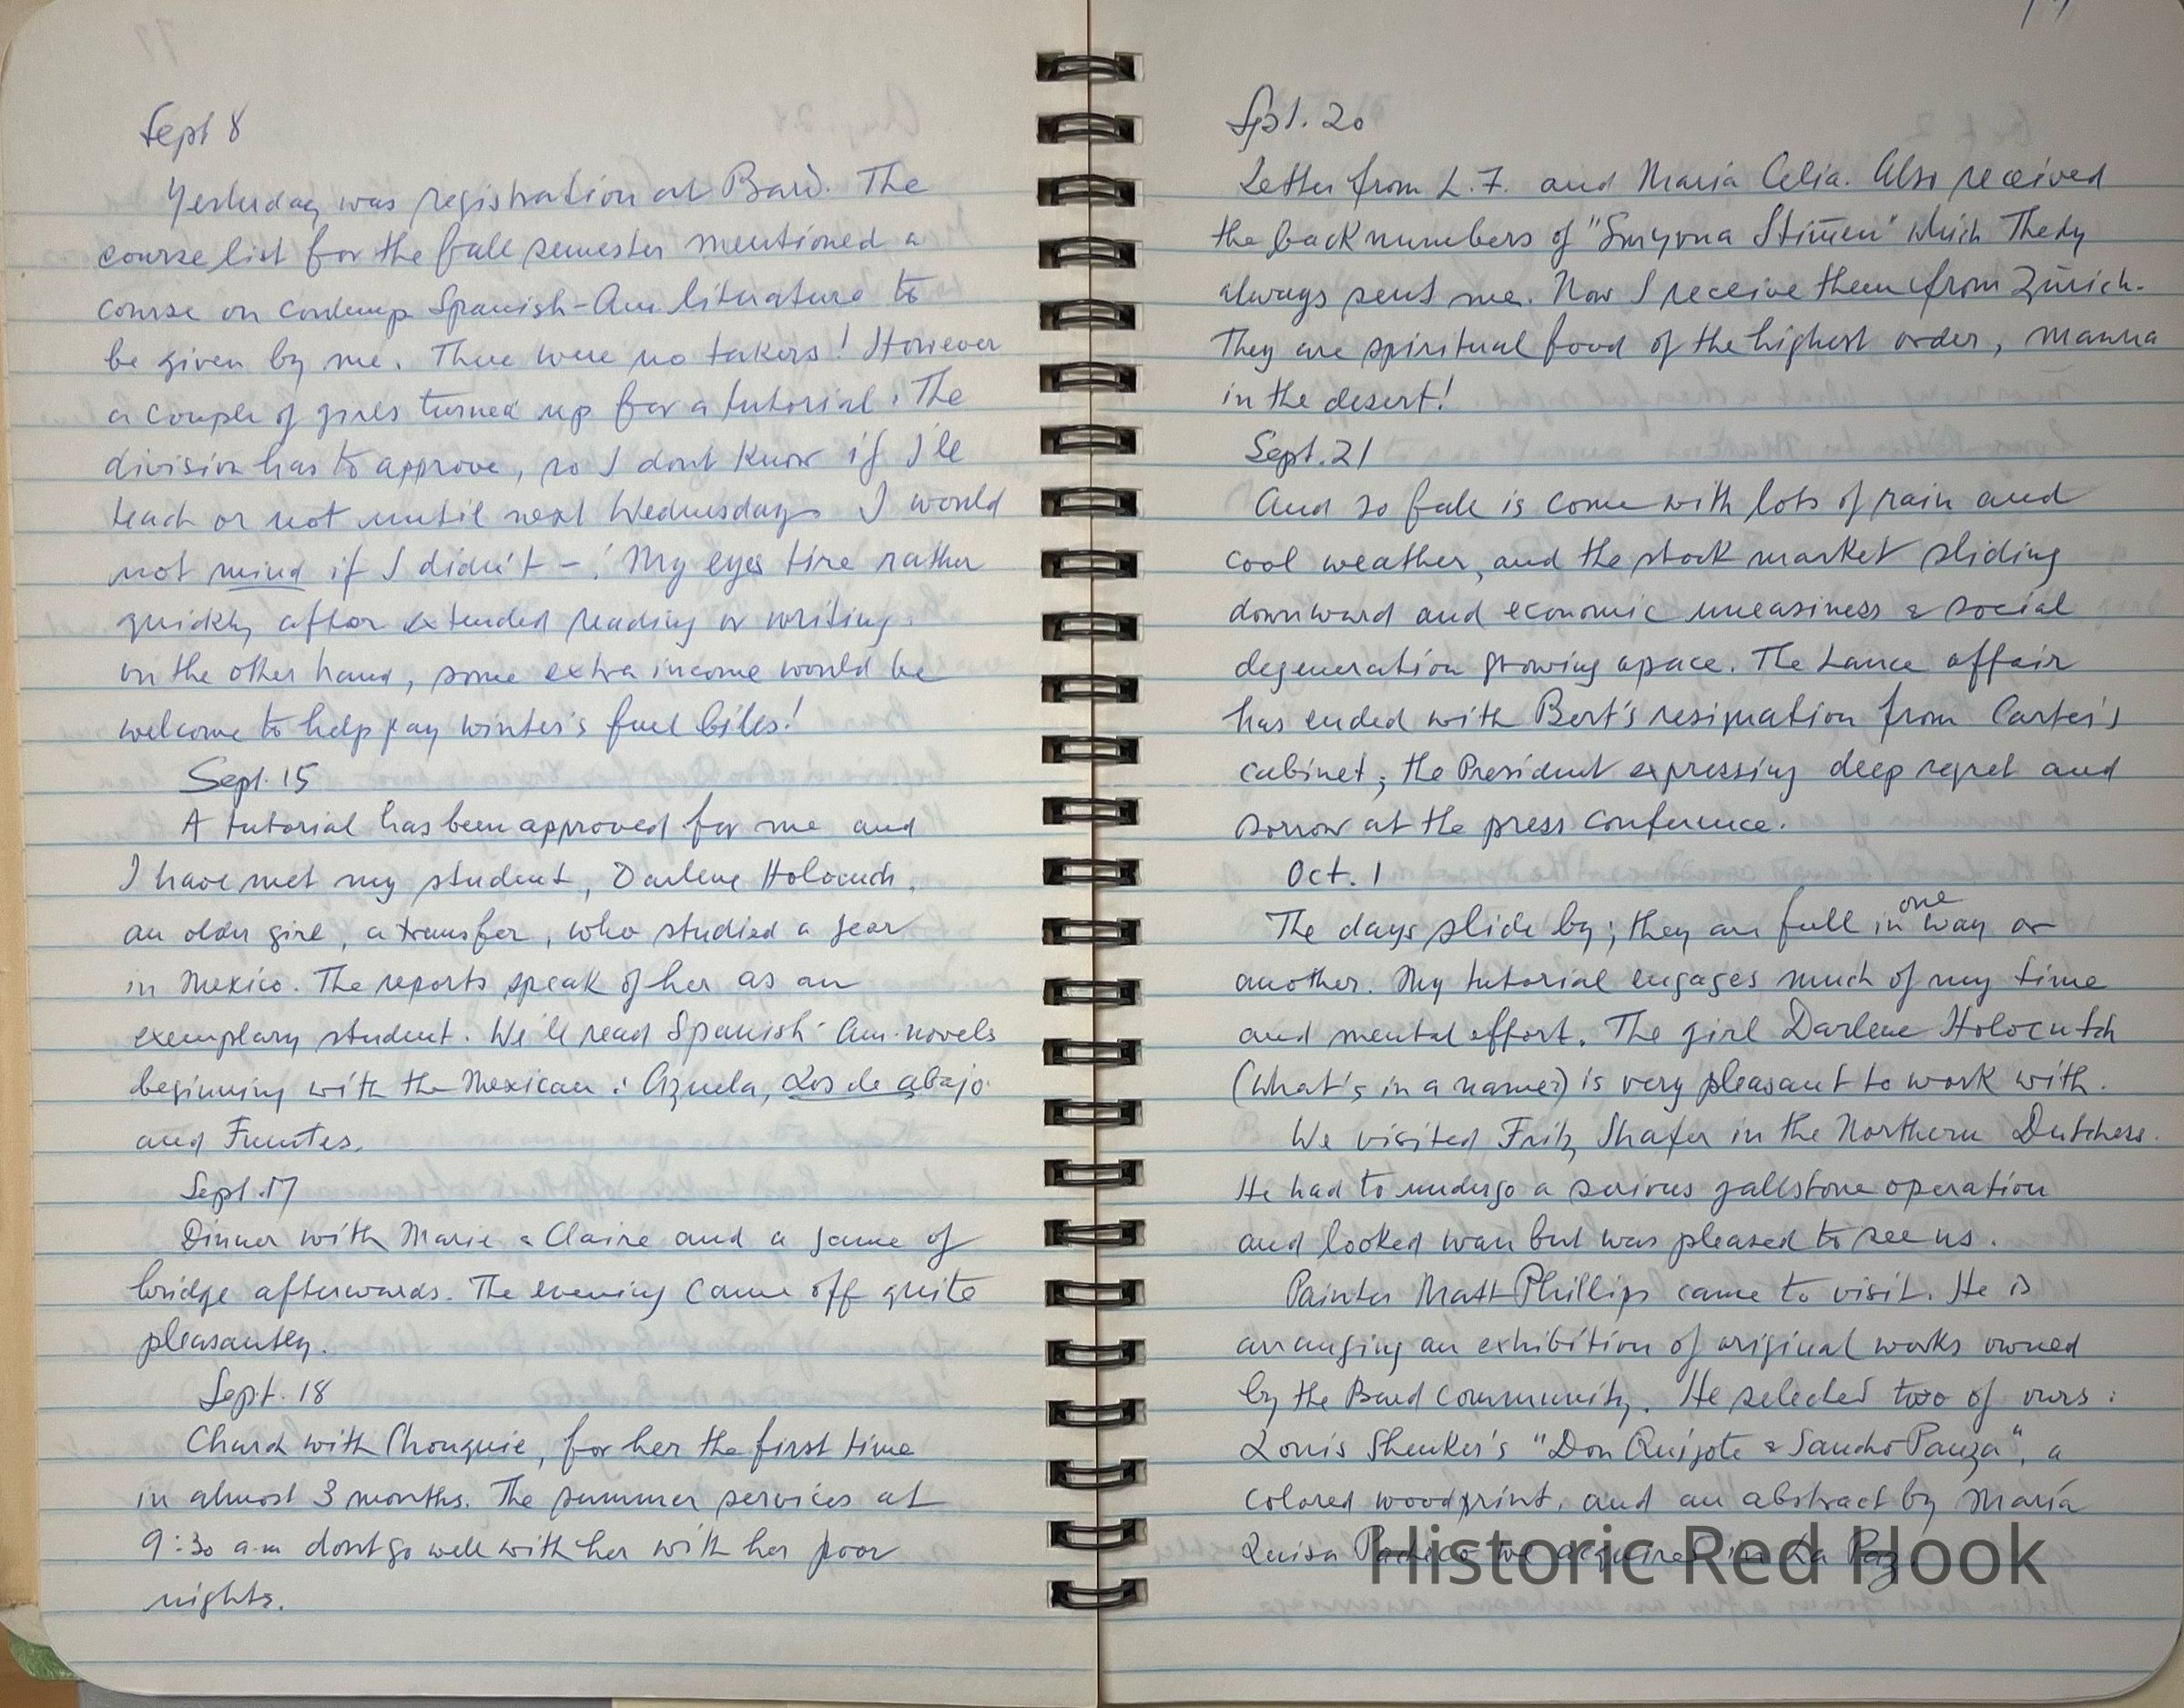 Sept 8
Yesterday was registration at Bard. The
course list for the fall semester mentioned a
course on contemp Spanish-Am literature to
be given by me. There were no takers! However
a couple of girls turned up for a tutorial. The
division has to approve, so I dont know if I'll
teach or not until next Wednesday. I would
not mind if I didn't –! My eyes tire rather
quickly after extended reading or writing.
on the other hand, some extra income would be
welcome to help pay winter's fuel bills!
Sept. 15
A tutorial has been approved for me and
I have met my student, Darlene
an older girl, a transfer, who studied a year
in Mexico. The reports speak of her as an
exemplary student. We'll read Spanish-Am. novels
beginning with the Mexican: Azuela, Los de abajo
and Fuentes.
Sept. 17
Dinner with Marie & Claire and a game of
bridge afterwards. The evening came off quite
pleasantly.
Sept. 18
Church with Chouquie, for her the first time
in almost 3 months. The summer services at
9:30 a.m dont go well with her with her poor
nights.
Spt. 20
Letter from L.F. and Maria Celia. Also received
the back numbers of "Smyrna Stim̄en" which Thedy
always sent me. Now I receive them from Zürich.
They are spiritual food of the highest order, manna
in the desert!
Sept. 21
And so fall is come with lots of rain and
cool weather, and the stock market sliding
downward and economic uneasiness & social
degeneration growing apace. The Lance affair
has ended with Bert's resignation from Carter's
cabinet; the President expressing deep regret and
sorrow at the press conference.
Oct. 1
The days slide by; they are full in one way or
another. My tutorial engages much of my time
and mental effort. The girl Darlene Holocutch
(what's in a name?) is very pleasant to work with.
We visited Fritz Shafer in the Northern Dutchess.
He had to undergo a serious gallstone operation
and looked wan but was pleased to see us.
Painter Matt Phillips came to visit. He is
arranging an exhibition of original works owned
by the Bard Community. He selected two of ours:
Louis Shenker's "Don Quijote & Sancho Panza", a
colored woodprint, and an abstract by María
Luisa Pacheco we acquired in La Paz.
Historic Red Hook